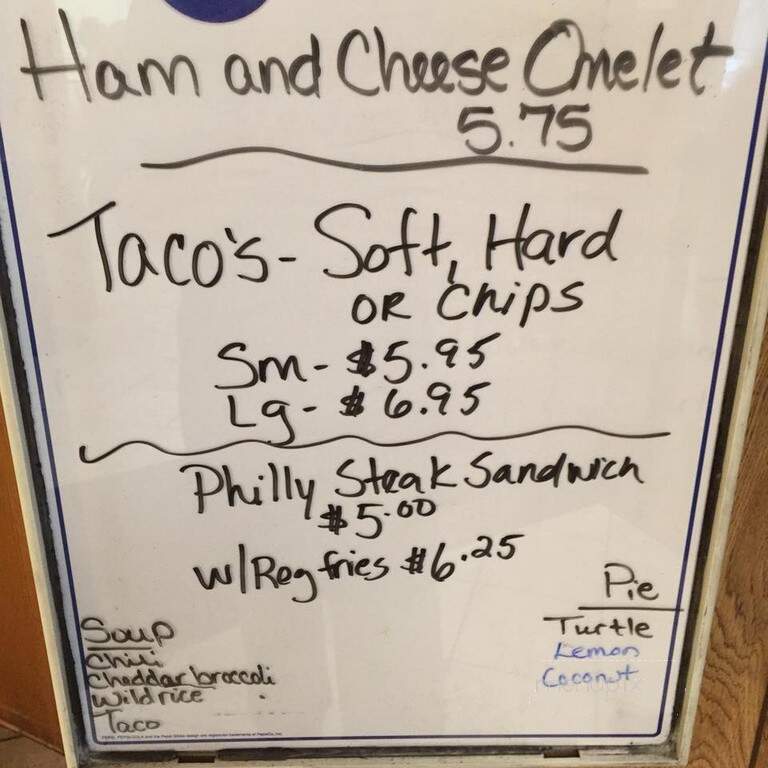 Ham and Cheese Omelet
5.75
Taco's - Soft, Hard
OR Chips
Sm - $5.95
Lg - $6.95
Philly Steak Sandwich
$5.00
w/Reg fries $6.25
Pie
Turtle
Lemon
Coconut
Soup
Chili
Cheddar broccoli
Wild rice
Taco